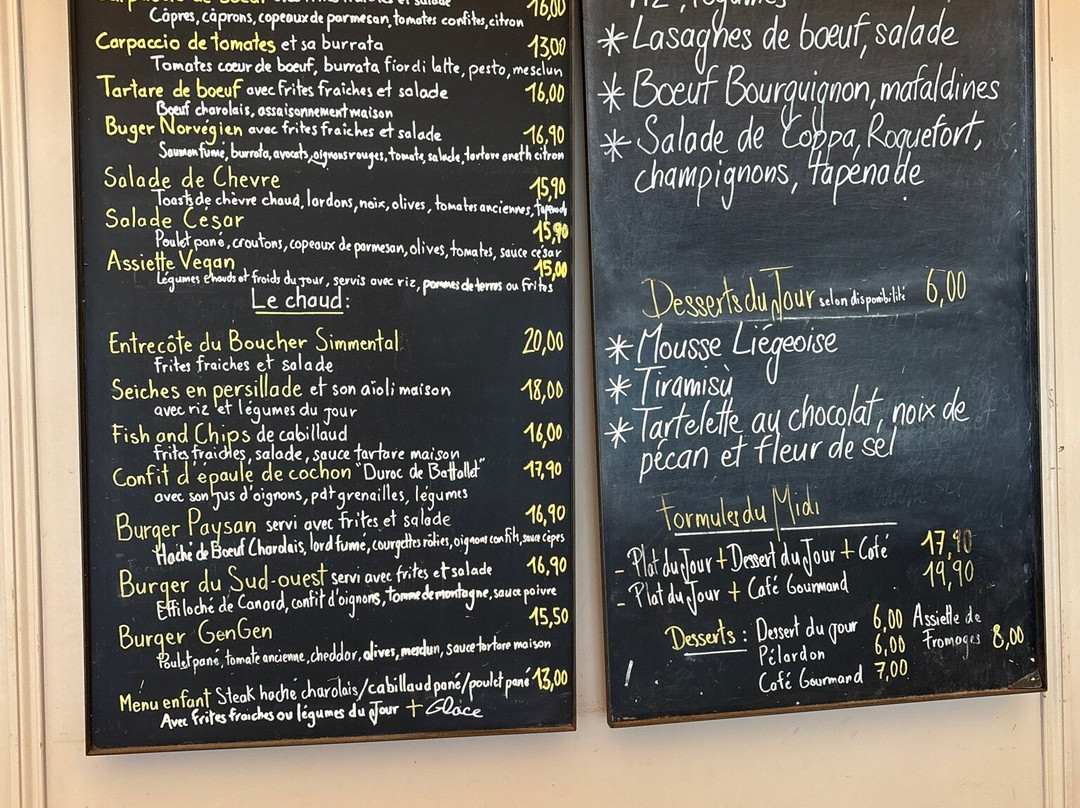 Carpaccio de boeuf avec frites fraîches et salade 16,00
Câpres, câprons, copeaux de parmesan, tomates confites, citron
Carpaccio de tomates et sa burrata 13,00
Tomates cœur de boeuf, burrata fior di latte, pesto, mesclun
Tartare de boeuf avec frites fraîches et salade 16,00
Bœuf charolais, assaisonnement maison
Buger Norvégien avec frites fraîches et salade 16,90
Saumon fumé, burrata, avocats, oignons rouges, tomate, salade, tartare aneth citron
Salade de Chevre 15,90
Toasts de chèvre chaud, lardons, noix, olives, tomates anciennes, tapenade
Salade César 15,90
Poulet pané, croutons, copeaux de parmesan, olives, tomates, sauce césar
Assiette Vegan 15,00
Légumes chauds et froids du jour, servis avec riz, pommes de terres ou frites
Le chaud:
Entrecôte du Boucher Simmental 20,00
Frites fraiches et salade
Seiches en persillade et son aïoli maison 18,00
avec riz et légumes du jour
Fish and Chips de cabillaud 16,00
Frites fraîches, salade, sauce tartare maison
Confit d'épaule de cochon "Duroc de Batallet" 17,90
avec son jus d'oignons, pdt grenailles, légumes
Burger Paysan servi avec frites et salade 16,90
Haché de Boeuf Charolais, lard fumé, courgettes rôties, oignons confits, sauce cèpes
Burger du Sud-ouest servi avec frites et salade 16,90
Effiloché de Canard, confit d'oignons, tomme de montagne, sauce poivre
Burger GenGen 15,50
Poulet pané, tomate ancienne, cheddar, olives, mesclun, sauce tartare maison
Menu enfant Steak haché charolais/cabillaud pané/poulet pané 13,00
Avec frites fraiches ou légumes du Jour + Glace
riz, légumes
* Lasagnes de boeuf, salade
* Boeuf Bourguignon, mafaldines
* Salade de Coppa, Roquefort,
champignons, tapenade
Desserts du Jour selon disponibilité 6,00
* Mousse Liégeoise
* Tiramisù
* Tartelette au chocolat, noix de
pécan et fleur de sel
Formules du Midi
- Plat du Jour + Dessert du Jour + Café 17,90
- Plat du Jour + Café Gourmand 19,90
Desserts : Dessert du jour 6,00
Pélardon 6,00
Café Gourmand 7,00
Assiette de
Fromages 8,00